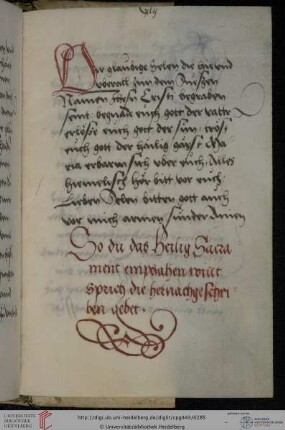 Ir glaubige Selen die hie vnd
vberall zuo dem
Namen Jhesu Cristi begraben
seint begnade euch gott der vatter
erlöse euch gott der sun tröst
euch gott der hailig gayst Ma
ria erbarm sich vber euch Alles
himelisch hör bitt vor euch
Lieben Selen bitten gott auch
vor mich armen sünder Amen
So du das Heilig Sacra
ment empfahen wilt
sprich die hernachgeschri
ben gebet
UNIVERSITÄTS-
BIBLIOTHEK
HEIDELBERG
http://digi.ub.uni-heidelberg.de/diglit/cpg447/0285
© Universitätsbibliothek Heidelberg